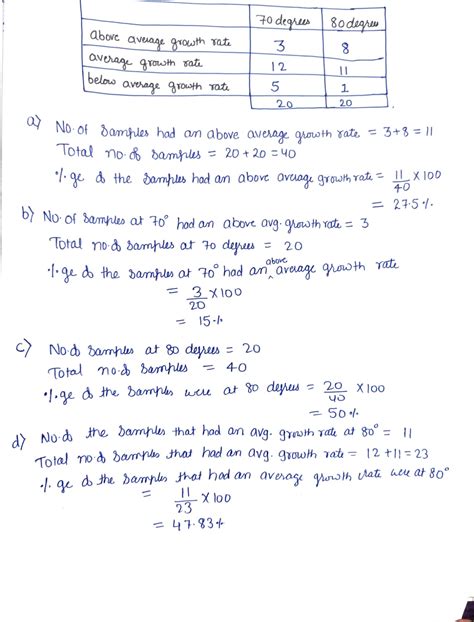 70 degrees 80 degrees
above average growth rate 3 8
average growth rate 12 11
below average growth rate 5 1
20 20
a) No. of Samples had an above average growth rate = 3+8 = 11
Total no. of Samples = 20 + 20 = 40
%ge of the Samples had an above average growth rate = 11/40 × 100
= 27.5 %
b) No. of Samples at 70° had an above avg. growth rate = 3
Total no. of Samples at 70 degrees = 20
%ge of the Samples at 70° had an above average growth rate
= 3/20 × 100
= 15 %
c) No. of Samples at 80 degrees = 20
Total no. of Samples = 40
%ge of the Samples were at 80 degrees = 20/40 × 100
= 50 %
d) No. of the Samples that had an avg. growth rate at 80° = 11
Total no. of Samples that had an avg. growth rate = 12 + 11 = 23
%ge of the Samples that had an average growth rate were at 80°
= 11/23 × 100
= 47.83 %